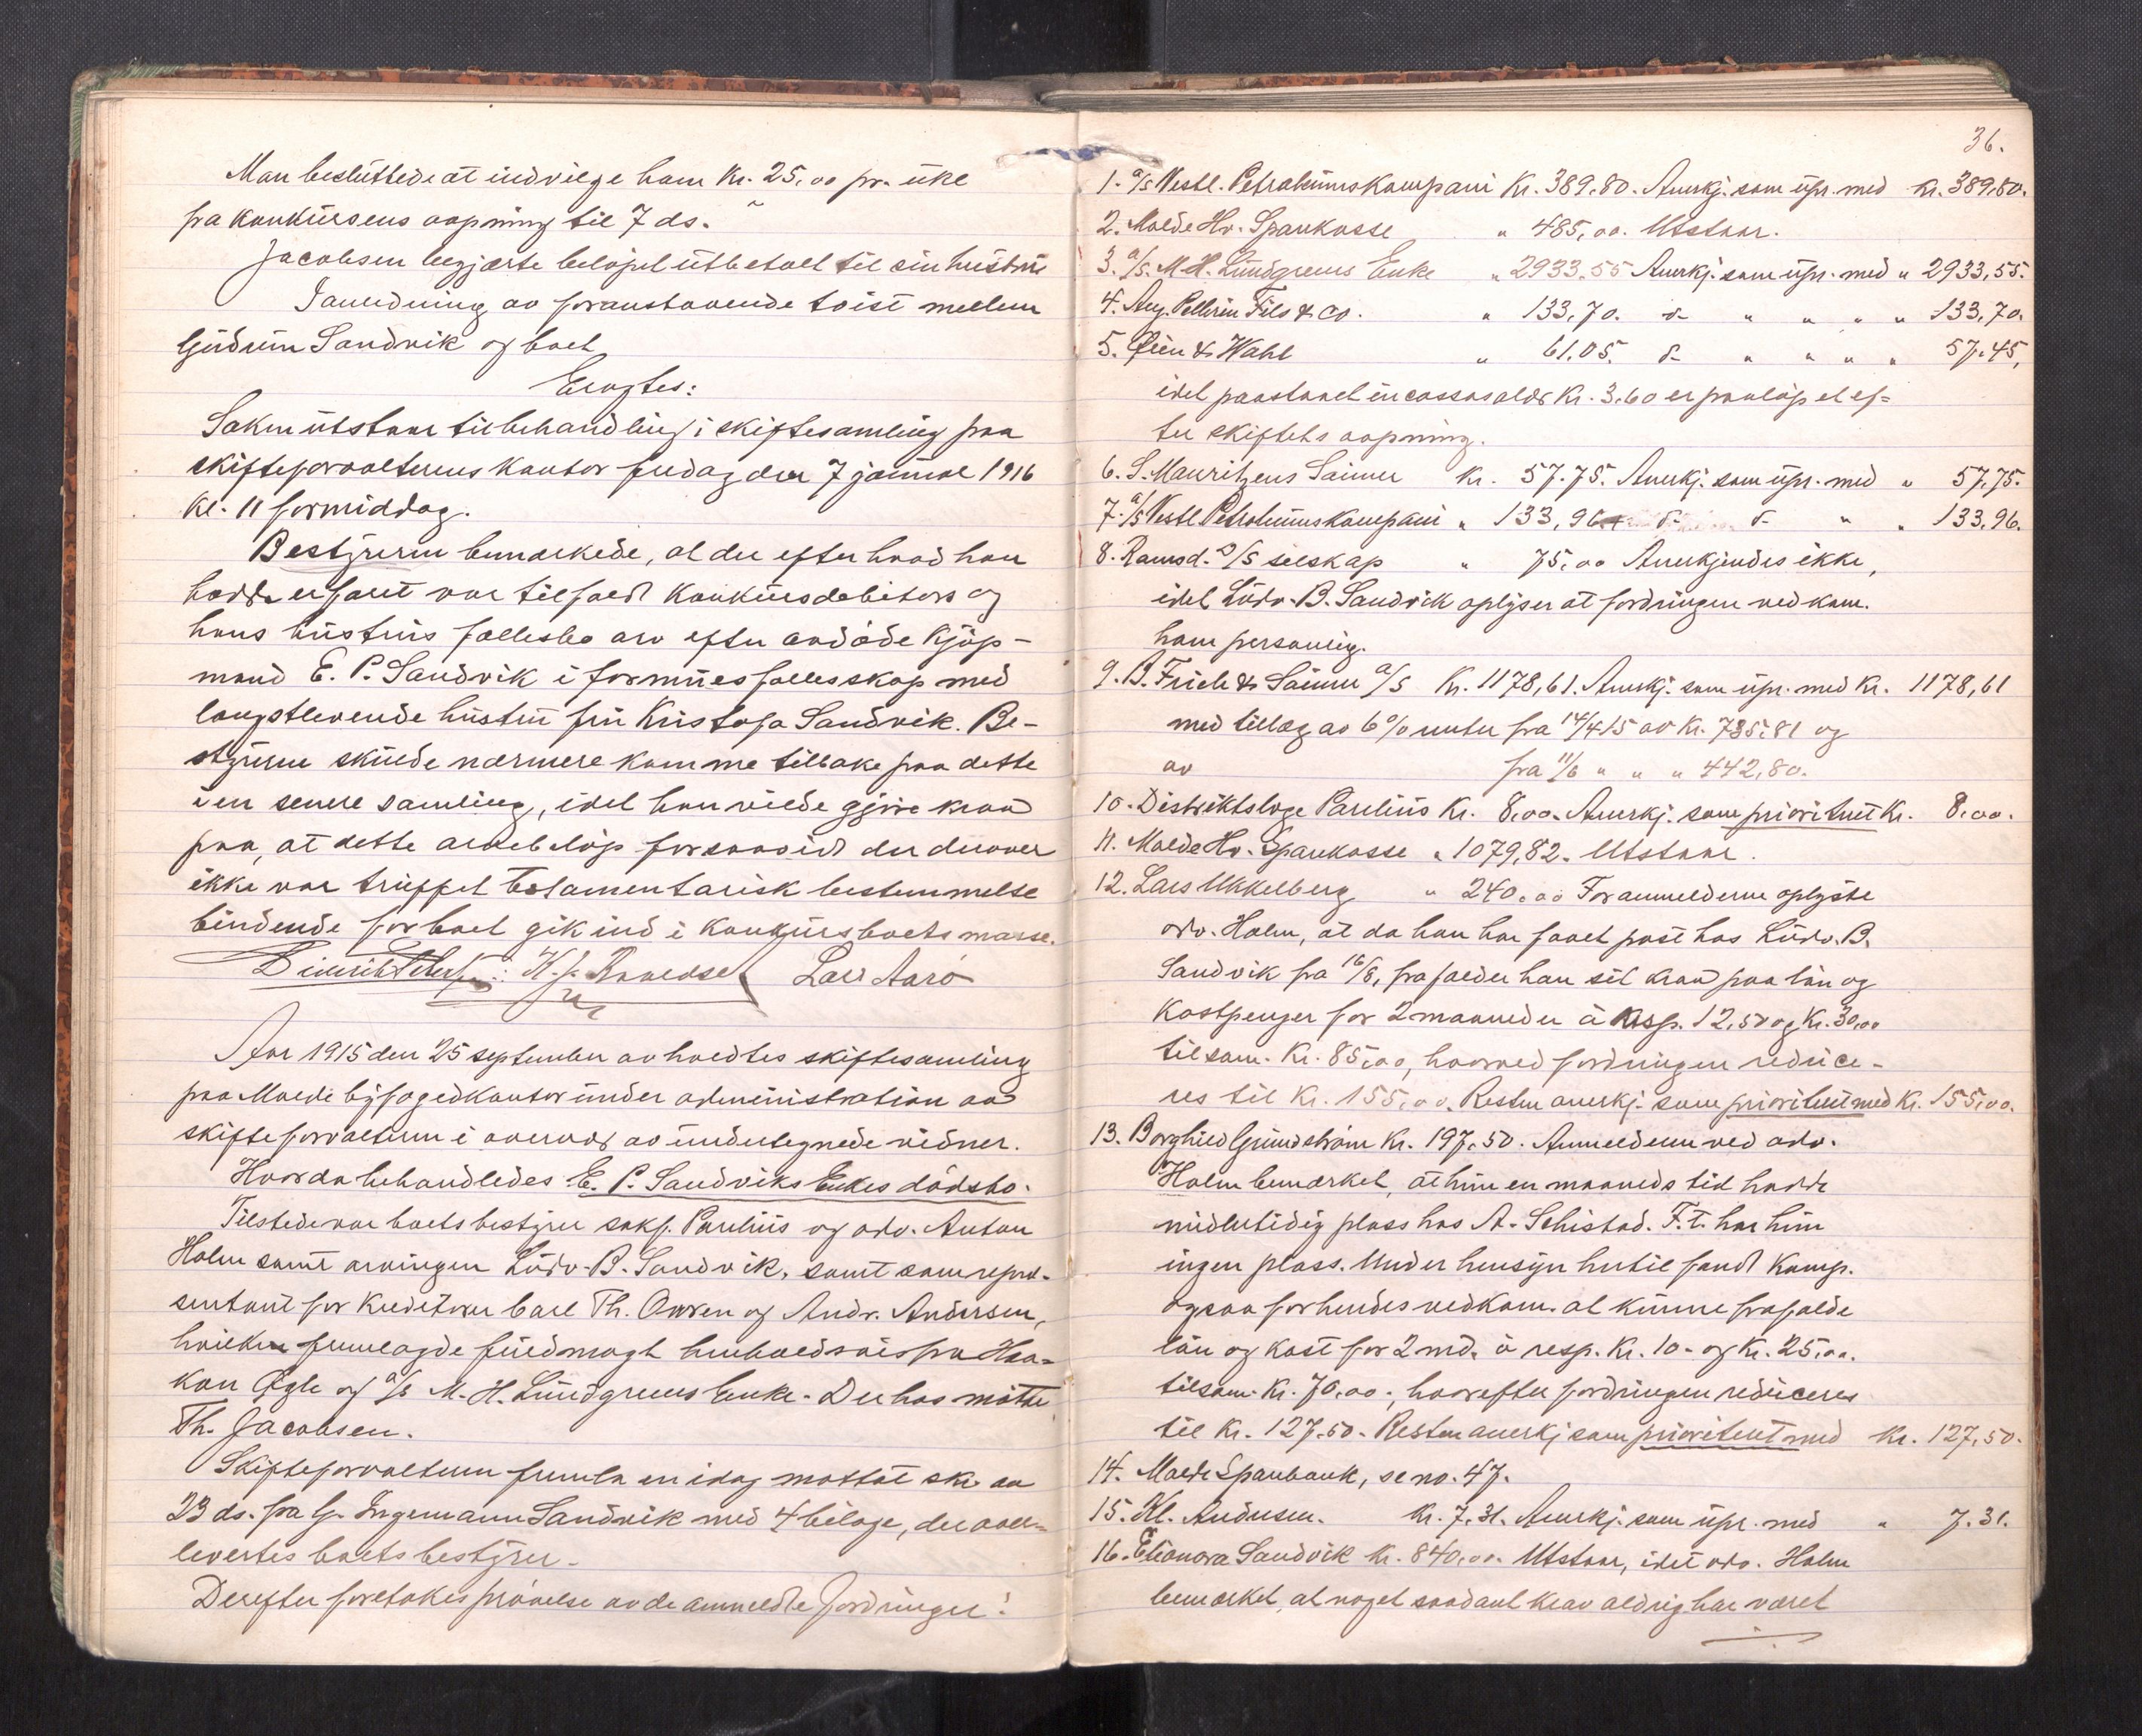 Man besluttede at indvilge ham Kr. 25,00 pr. uke
fra konkursens aapning til 7 ds.
Jacobsen begjærte beløpet utbetalt til sin hustru
I anledning av foranstaaende tvist mellem
Gudrun Sandvik og boet
Eragtes:
Saken utstaar til behandling i skiftesamling paa
skifteforvalterens kontor fredag den 7 januar 1916
kl. 11 formiddag.
Bestyreren bemerkede, at der efter hvad han
hadde erfaret var tilfaldt konkursdebitors og
hans hustrus fællesbo arv efter avdøde kjøp-
mand E. P. Sandvik i formuesfællesskap med
længstlevende hustru fru Kristofa Sandvik. Be-
styreren skulde nærmere komme tilbake paa dette
i en senere samling, idet han vilde gjøre krav
paa, at dette arvebeløp forsaavidt der derover
ikke var truffet testamentarisk bestemmelse
bindende for boet gik ind i konkursboets masse.
Lars Aarø
Aar 1915 den 25 september avholdtes skiftesamling
paa Molde byfogedkontor under administration av
skifteforvalteren i overvær av undertegnede vidner.
Hvorda behandledes E. P. Sandviks Enkes dødsbo.
Tilstede var boets bestyrer sakf. Paulius og adv. Anton
Holm samt arvingen Ludv. B. Sandvik, samt som repræ-
sentant for kreditorer Carl Th. Owren og Andr. Andersen,
hvilken fremlagde fuldmagt henholdsvis fra Haa-
kon Øgle og a/s M. H. Lundgreens Enke. Derhos møtte
Th. Jacobsen.
Skifteforvalteren fremla en idag mottat skr. av
23 ds. fra G. Ingemann Sandvik med 4 bilage, der over-
levertes boets bestyrer.
Derefter foretokes prøvelse av de anmeldte fordringer:
36.
1. a/s Vestl. Petroleumskompani Kr. 389.80. Anerkj. som upr. med kr. 389,80.
2. Molde Hv. Sparekasse " 485,00. Utstaar.
3. a/s. M. H. Lundgreens Enke " 2933.55 Anerkj. som upr. med " 2933,55.
4. Aug. Pellerin Fils & Co. " 133,70. d- " " " " 133,70.
5. Lien & Wahl " 61.05. d- " " " " 57.45,
idet paastanet incassosalær Kr. 3.60 er paaløpet ef-
ter skiftets aapning.
6. S. Mauritzens Sønner Kr. 57.75. Anerkj. som upr. med " 57,75.
7. a/s Vestl. Petroleumskompani " 133,96 d- d- " " 133.96.
8. Ramsd. D/S selskap " 75,00 Anerkjendes ikke,
idet Ludv. B. Sandvik oplyser at fordringen vedkom.
ham personlig.
9. B. Friele & Sønner a/s Kr. 1178,61. Anerkj. som upr. med Kr. 1178,61
med tillæg av 6% renter fra 14/4 15 av Kr. 735.81 og
av fra 11/6 " " " 442,80.
10. Distriktslæge Paulius Kr. 8,00. Anerkj. som prioritert Kr. 8.00.
11. Molde Hv. Sparekasse " 1079,82. Utstaar.
12. Lars Ukkelberg " 240.00 For anmelderen oplyste
adv. Holm, at da han har faaet post hos Ludv. B.
Sandvik fra 16/8, frafalder han sit krav paa løn og
kostpenger for 2 maaneder à resp. 12,50 og Kr. 30,00
tilsam. Kr. 85,00, hvorved fordringen reduce-
res til Kr. 155,00. Resten anerkj. som prioritert med Kr. 155,00.
13. Borghild Grundstrøm Kr. 197.50. Anmelderen ved adv.
Holm bemerket, at hun en maaneds tid hadde
midlertidig plass hos A. Schistad. F.t. har hun
ingen plass. Under hensyn hertil fandt komp.
ogsaa for hendes vedkom. at kunne frafalde
løn og kost for 2 md. à resp. Kr. 10.- og Kr. 25,00.
tilsam. Kr. 70,00, hvorefter fordringen reduceres
til Kr. 127.50. Resten anerkj. som prioritert med Kr. 127,50.
14. Molde Sparebank, se no. 47.
15. Kl. Andersen. Kr. 7.31. Anerkj. som upr. med " 7.31.
16. Elionora Sandvik Kr. 840,00. Utstaar, idet adv. Holm
bemerket, at noget saadant krav aldrig har været